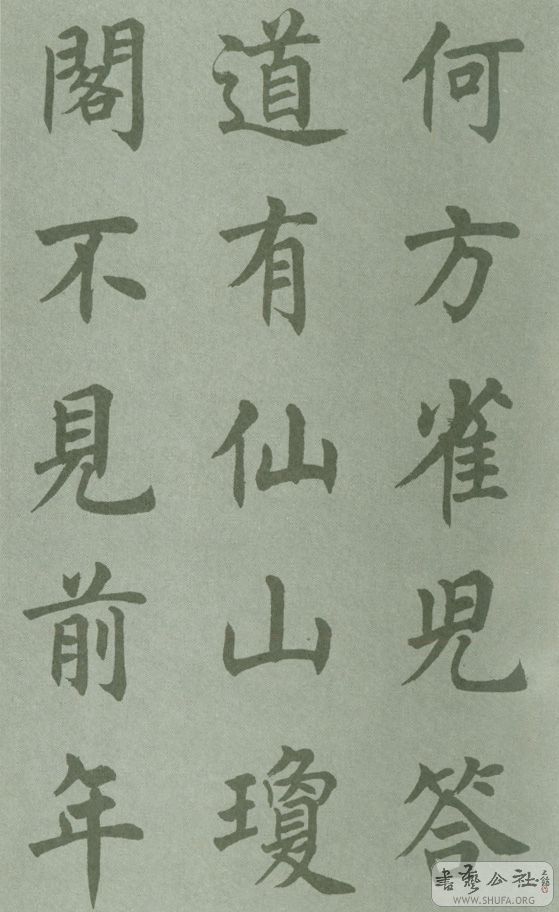 何方雀児答
道有仙山瓊
閣不見前年
書藝公社
WWW.SHUFA.ORG